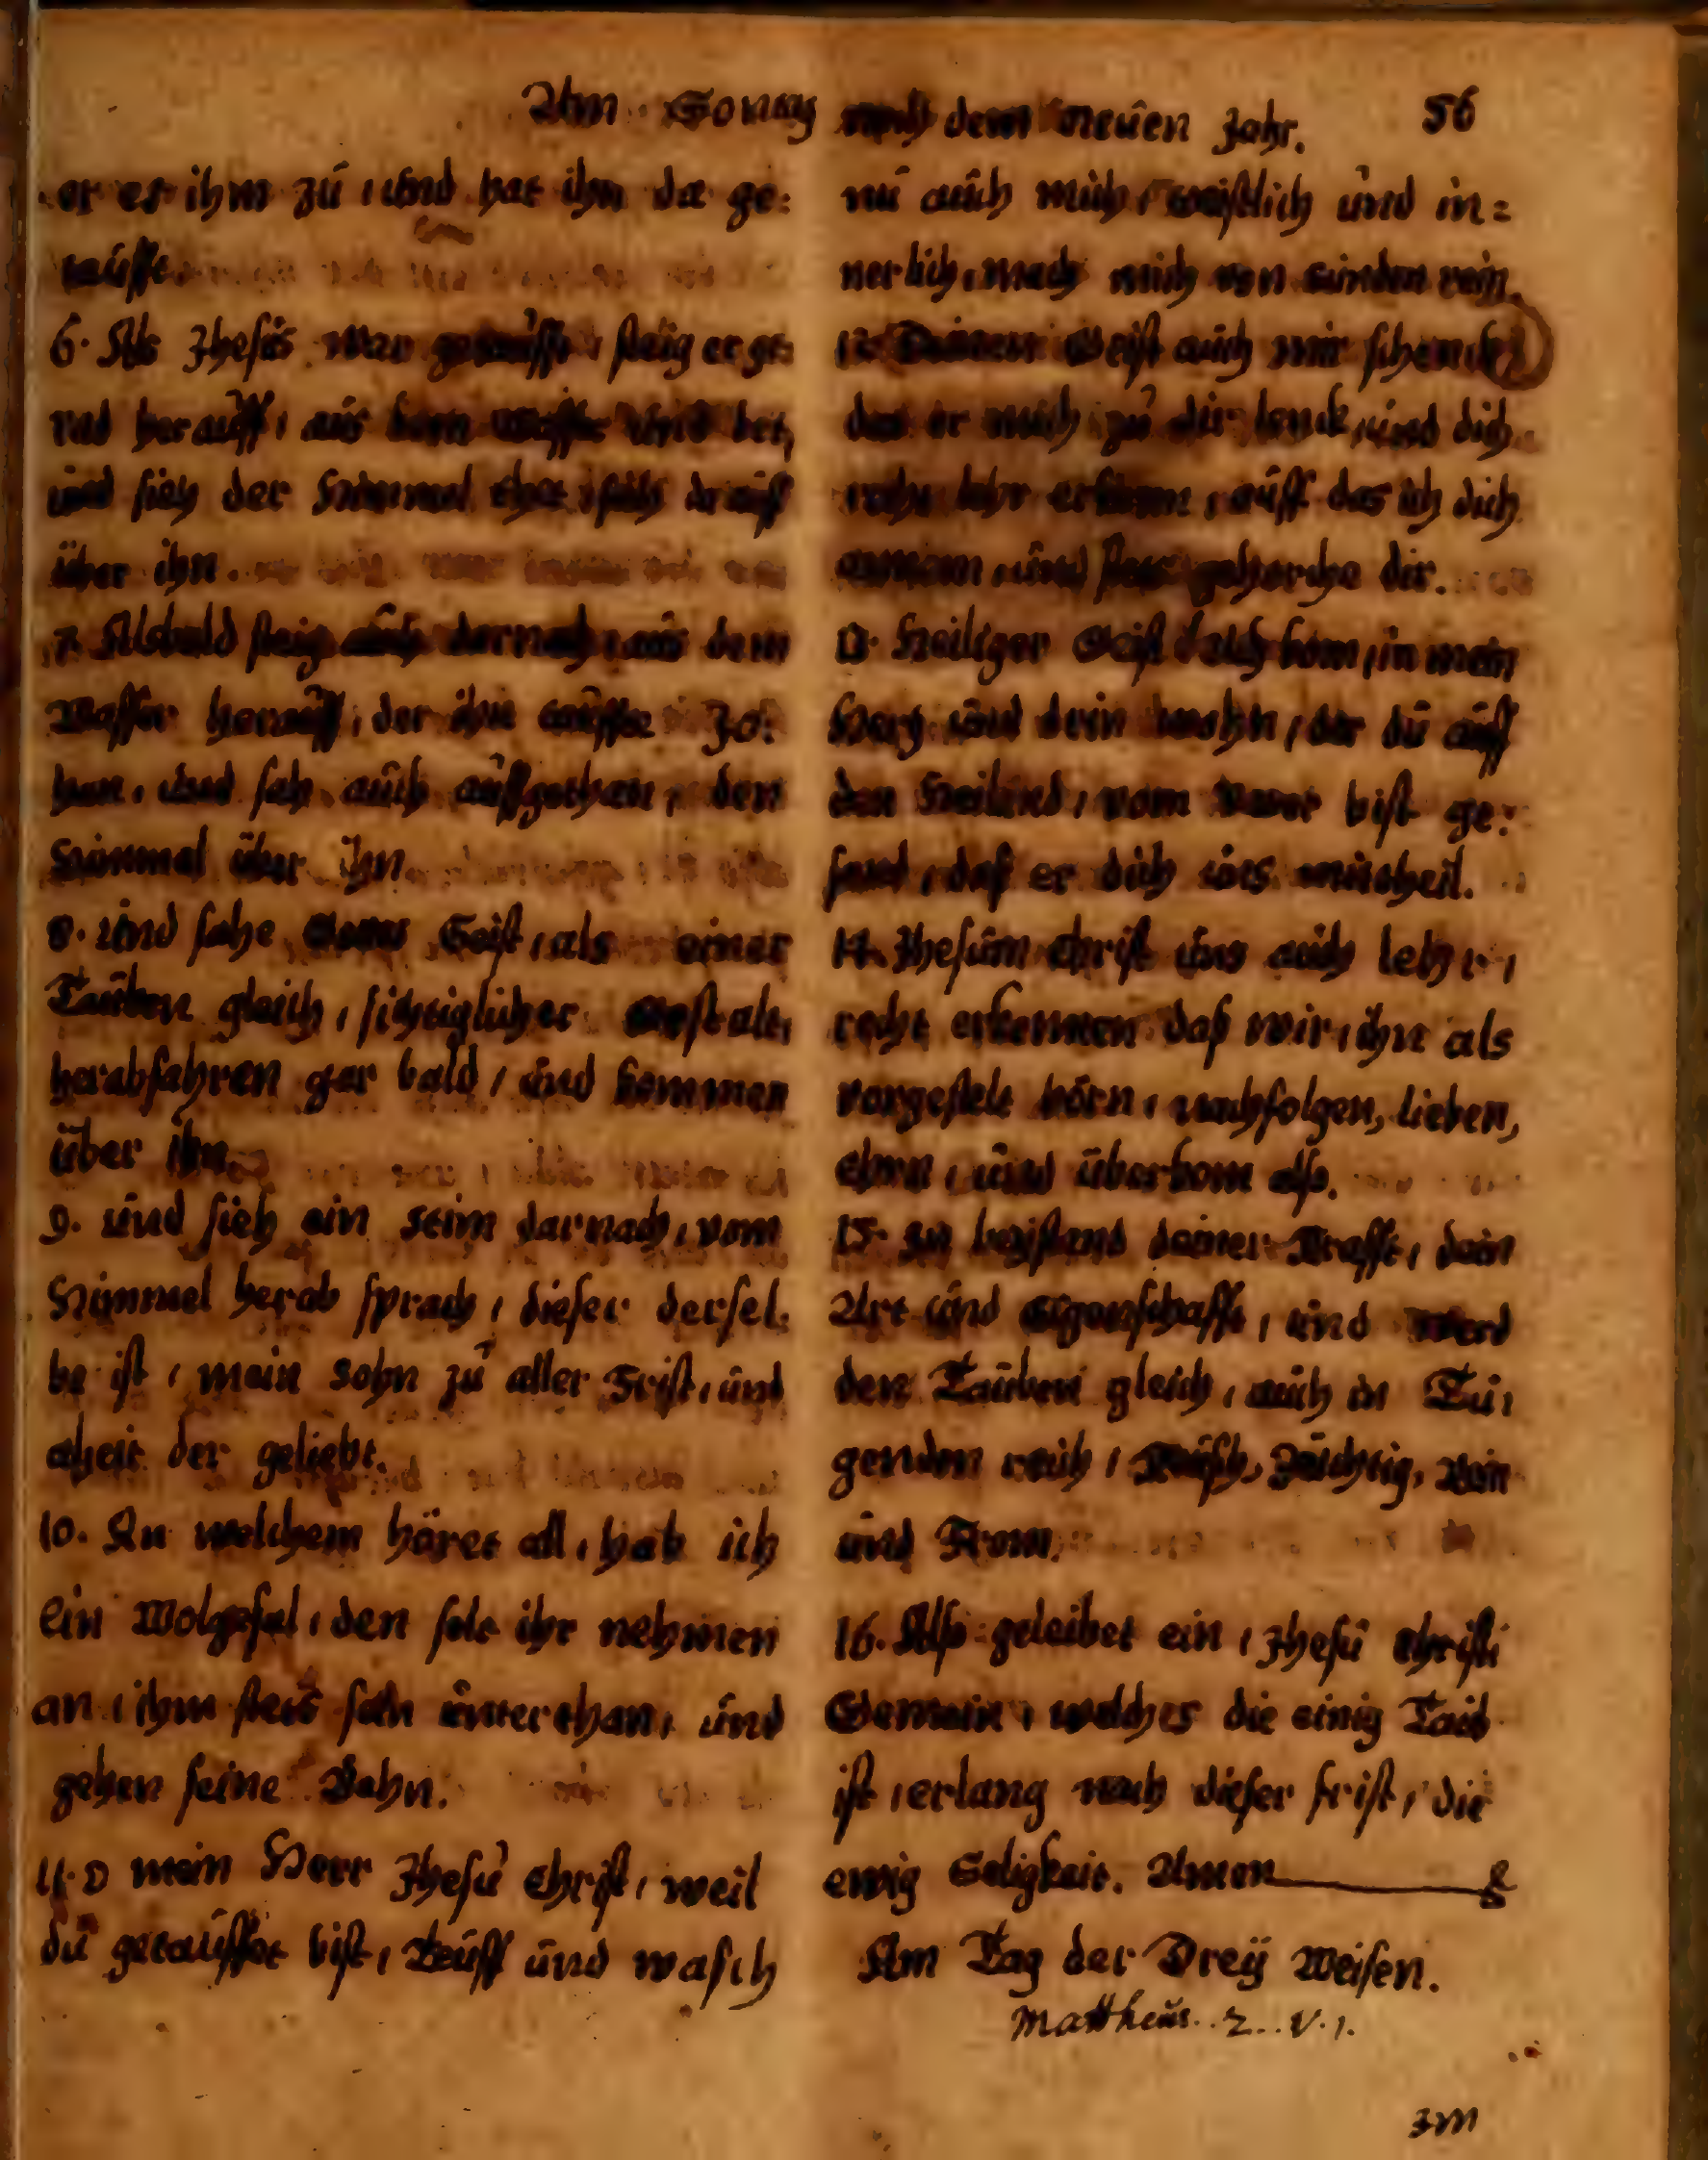 Am Sontag nach dem neuen Jahr. 56
er es ihm zu, und hat ihn da ge:
taufft.
6. Als Jhesus war getaufft, steig er ge:
rad herauff, aus dem wasser und bet,
und sieh der Himmel thet, sich drauff
über ihn.
7. Alsbald steig auch darnach, aus dem
Wasser herauff, der ihn tauffte Jo:
han, und sah auch auffgethan, den
Himmel über ihn.
8. und sahe Gottes Geist, als einer
Tauben gleich, sichtiglicher Gestalt,
herabfahren gar bald, und kommen
über ihn.
9. und sieh ein stim darnach, vom
Himmel herab sprach, dieser dersel:
be ist, mein sohn zu aller Frist, und
der geliebt.
10. An welchem höret all, hab ich
ein Wolgefal, den solt ihr nehmen
an, ihm stets sein unterthan, und
gehen seine Bahn.
11. O mein Herr Jhesu Christ, weil
du getauffet bist, Tauff und wasch
nu auch mich, geistlich und in=
nerlich, mach mich von sünden rein.
12. Deinen Geist auch mir schenck,
das er mich zu dir lenck, und dich
recht lehr erkenn, auff das ich dich
annem, und stets gehorche dir.
13. Heiliger Geist doch kom, in mein
Hertz und drin wohn, der du auff
den Heiland, vom Vater bist ge:
sand, daß er dich uns mittheil.
14. Jhesum Christ uns auch lehr,
recht erkennen daß wir, ihn als
vorgestelt hörn, nachfolgen, lieben,
ehrn, und überkom also.
15. In beystand deiner Krafft, dein
Art und Eigenschafft, und werd
den Tauben gleich, auch in Tu:
genden reich, Keusch, Züchtig, Rein
und From.
16. Also geleibet ein, Jhesu Christi
Gemein, welches die einig Taub
ist, erlang nach dieser frist, die
ewig Seligkeit. Amen
Am Tag der Dreÿ Weisen.
Mattheus. 2. V. 1.
Im